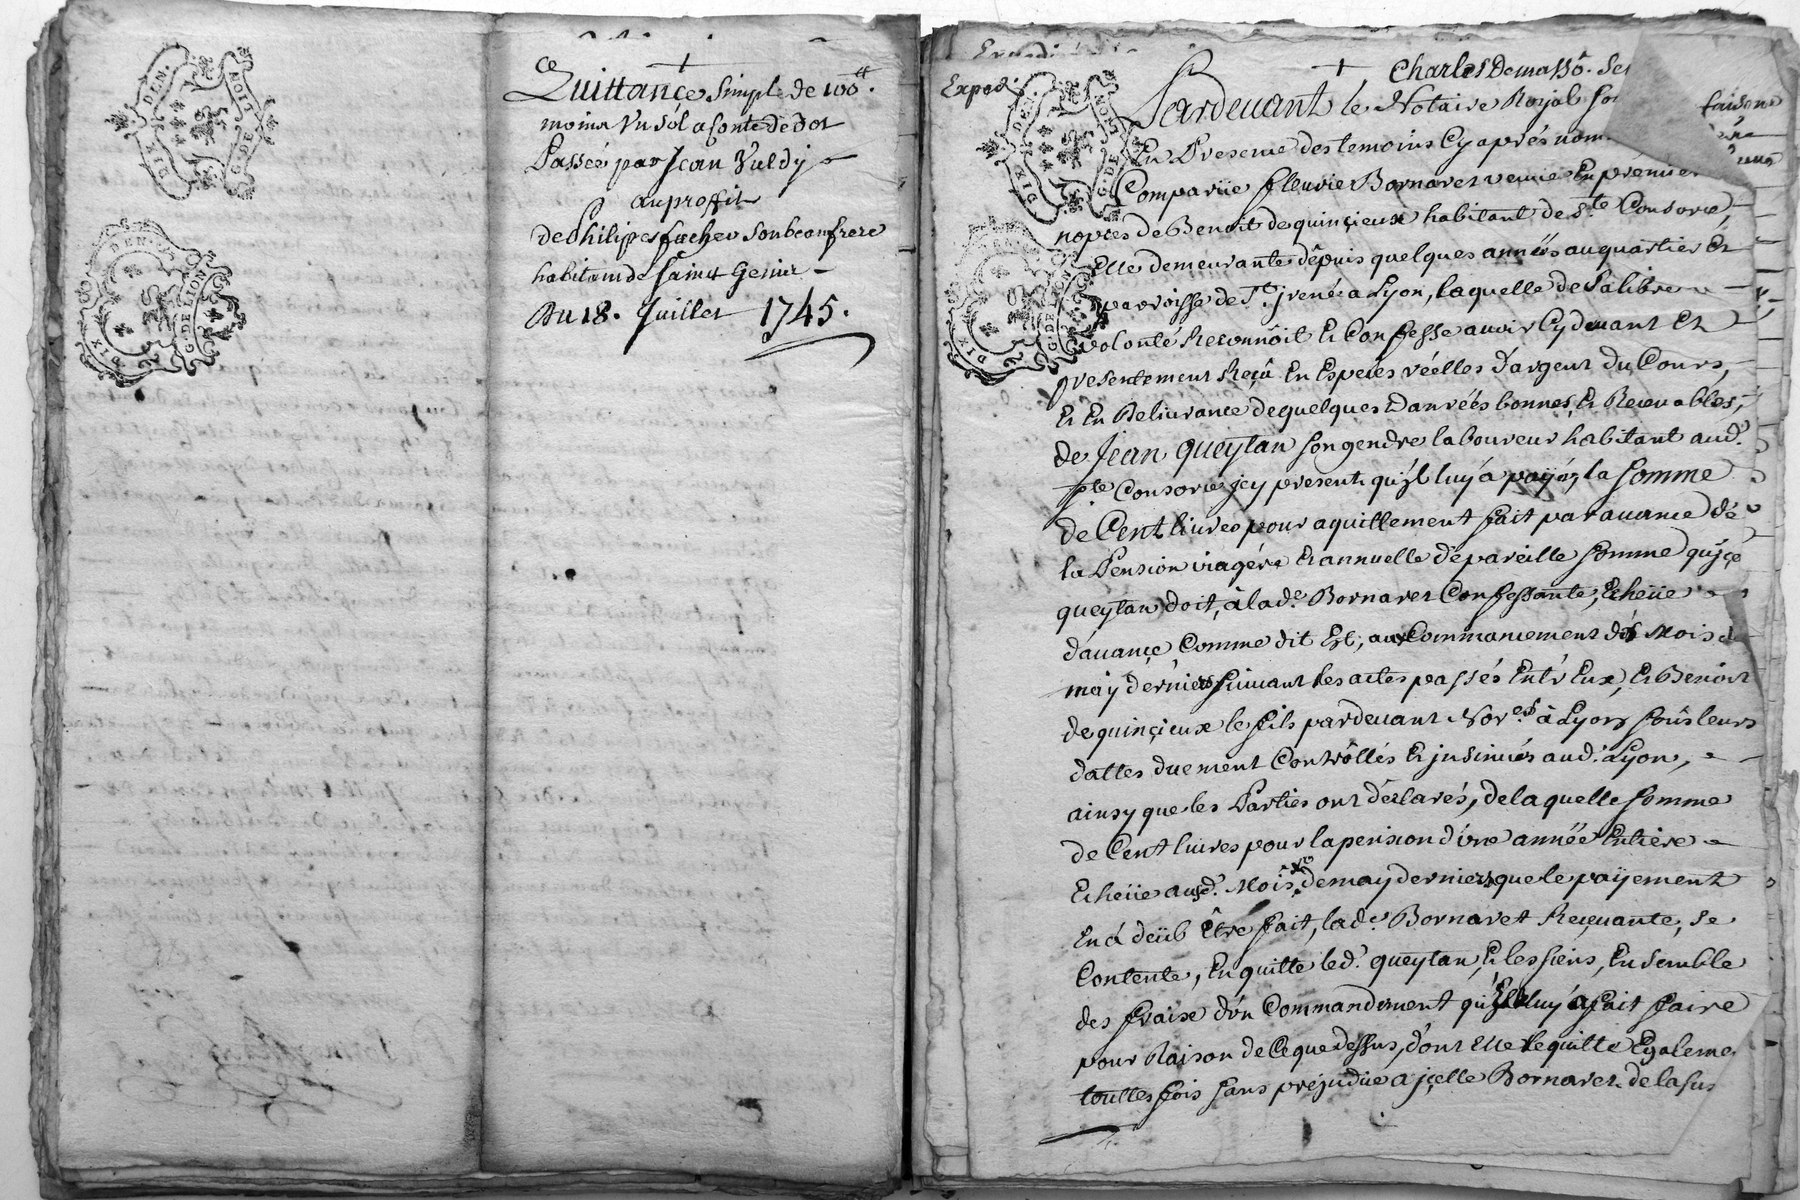 DIX DEN.
G. DE LION
DIX DEN.
G. DE LION
ce
Quittance simple de 100lt.
moins Un sol a Conte de dot
Passée par Jean Vuldy
au proffit
de Philipes facher son beaufrere
habitant de Saint Genis
Du 18. Juillet 1745.
Exped:
DIX DEN.
G. DE LION
DIX DEN.
G. DE LION
Charles Demasso. Sei
Pardevant le Notaire Royal
En Presence des temoins Cy aprés nom
Comparüe fleurie Bornaret veuve En prémieres
nopces de Benoit de quinçieux habitant de Ste. Consorce,
Elle demeurante dêpuis quelques années au quartier Et
parroisse de St. jrenée a Lyon, laquelle de Sa libre
volonté Reconnôit Et Confesse avoir Cy devant Et
presentement Reçû En Especes réelles D'argent du Cours,
Et En Delivrance de quelques Danrées bonnes, Et Recevables,
de Jean queylan son gendre laboureur habitant aud.
Ste Consorce jcy present, qu'jl luy a payée, la somme
de Cent livres pour aquittement fait par avance dé
la Pension viagére Et annuelle de pareille somme qu'jçe
queylan doit, à lad.e Bornaret Confessante, Echeüe
d'avançe Comme dit Est, au Commancement dés Mois de
may dérnier suivant les actes passés Entr'Eux, Et Benoit
de quinçieux le fils pardevant Nores. à Lyon sous leurs
dattes duement Contrôllés Et jnsinués aud. Lyon,
ainsy que les Parties ont déclarés, de laquelle somme
de Cent livres pour la pension d'une année Entiére
Echeüe aud. Mois de may dernier que le payement
En à deüb Être fait, lad.e Bornaret Reçevante, se
Contente, En quitte led. queylan, Et les siens, Ensemble
des fraix d'un Commandement qu'Elle luy a fait faire
pour Raison de Ce que dessus, dont Elle le quitte Egaleme
touttes fois sans préjudice a jçelle Bornaret de la sus